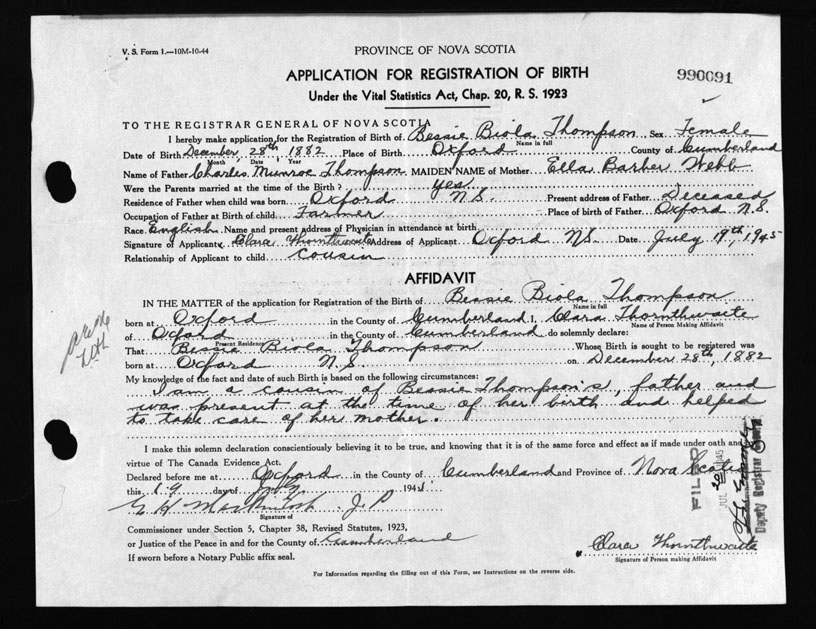 V. S. Form 1.—10M-10-44
PROVINCE OF NOVA SCOTIA
990091
APPLICATION FOR REGISTRATION OF BIRTH
Under the Vital Statistics Act, Chap. 20, R. S. 1923
TO THE REGISTRAR GENERAL OF NOVA SCOTIA
I hereby make application for the Registration of Birth of Bessie Biola Thompson Sex Female
Name in full
Date of Birth December 28th 1882 Place of Birth Oxford County of Cumberland
Month Date Year
Name of Father Charles Munroe Thompson MAIDEN NAME of Mother Ella Barber Webb
Were the Parents married at the time of the Birth? yes
Residence of Father when child was born Oxford N.S. Present address of Father Deceased
Occupation of Father at Birth of child Farmer Place of birth of Father Oxford N.S.
Race English Name and present address of Physician in attendance at birth
Signature of Applicant Clara Thornthwaite Address of Applicant Oxford NS. Date July 19th, 1945
Relationship of Applicant to child Cousin
AFFIDAVIT
IN THE MATTER of the application for Registration of the Birth of Bessie Biola Thompson
Name in full
born at Oxford in the County of Cumberland I, Clara Thornthwaite
Name of Person Making Affidavit
of Oxford in the County of Cumberland do solemnly declare:
Present Residence
That Bessie Biola Thompson Whose Birth is sought to be registered was
born at Oxford N.S. on December 28th, 1882
My knowledge of the fact and date of such Birth is based on the following circumstances:
I am a cousin of Bessie Thompson's, father and
was present at the time of her birth and helped
to take care of her mother.
I make this solemn declaration conscientiously believing it to be true, and knowing that it is of the same force and effect as if made under oath and by
virtue of The Canada Evidence Act.
Declared before me at Oxford in the County of Cumberland and Province of Nova Scotia
this 19 day of July 1945
J. P
Signature of
Commissioner under Section 5, Chapter 38, Revised Statutes, 1923,
or Justice of the Peace in and for the County of Cumberland
If sworn before a Notary Public affix seal.
Clara Thornthwaite
Signature of Person making Affidavit
For Information regarding the filling out of this Form, see Instructions on the reverse side.
FILED
JUL 20 1945
Deputy Registrar General